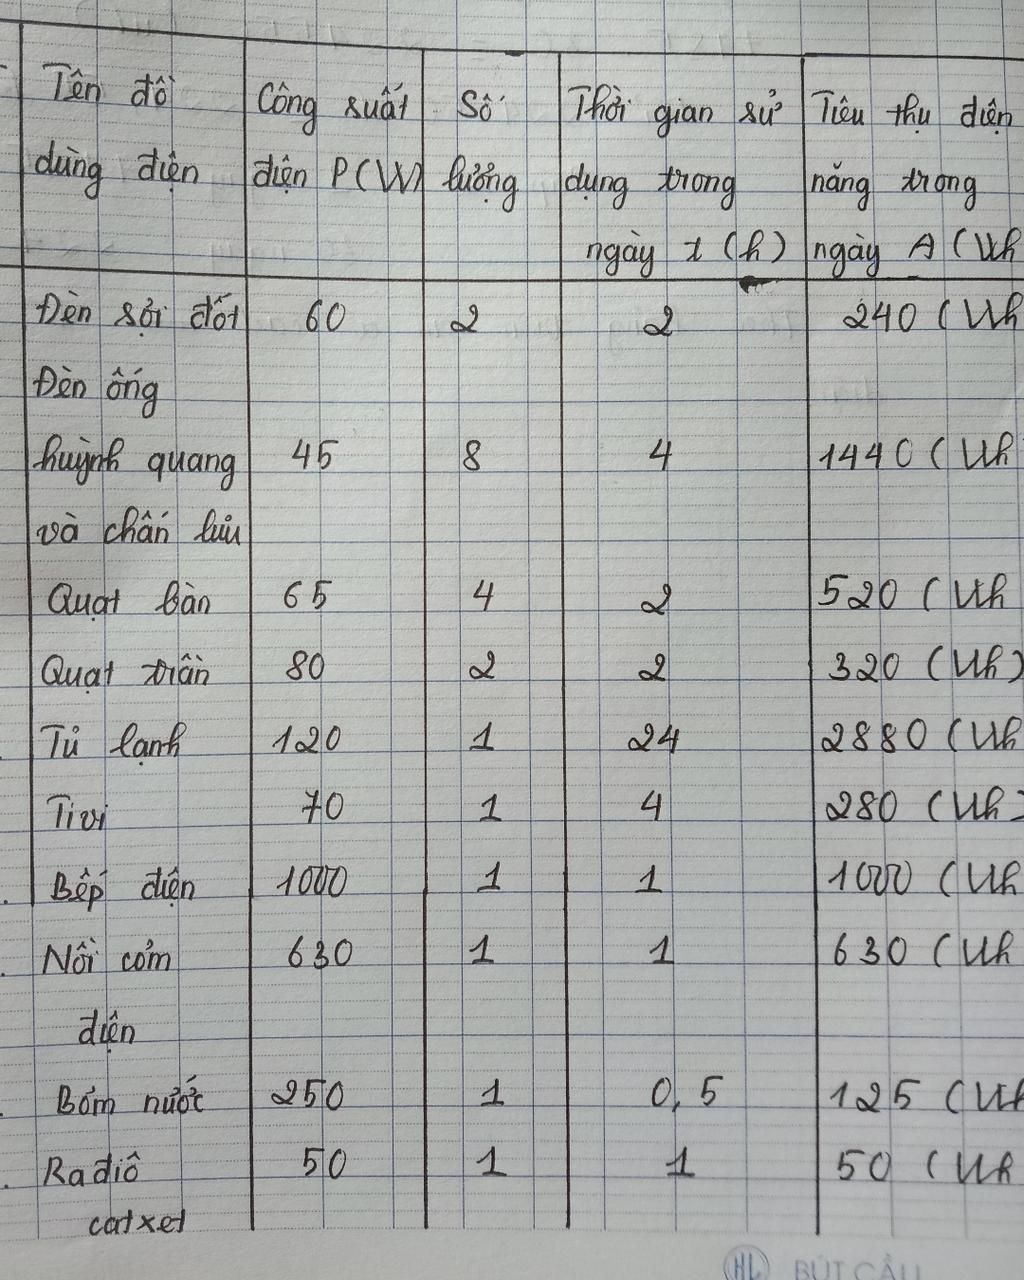 Tên đồ Công suất Số Thời gian sử Tiêu thụ điện
dùng điện điện P(W) lượng dụng trong năng trong
ngày t (h) ngày A (Wh
Đèn sợi đốt 60 2 2 240 (Wh
Đèn ống
huỳnh quang 45 8 4 1440 (Wh
và chấn lưu
Quạt bàn 65 4 2 520 (Wh
Quạt trần 80 2 2 320 (Wh)
Tủ lạnh 120 1 24 2880 (Wh
Tivi 70 1 4 280 (Wh)
Bếp điện 1000 1 1 1000 (Wh
Nồi cơm 630 1 1 630 (Wh
điện
Bơm nước 250 1 0,5 125 (Wh
Rađiô 50 1 1 50 (Wh
catxet
HL BÚT CẦU